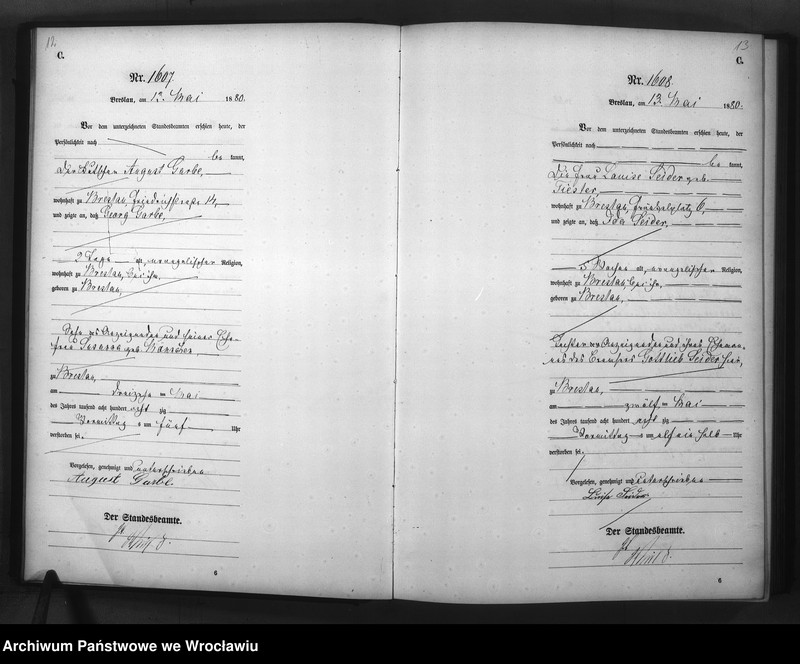 12.
C.
Nr. 1607.
Breslau, am 13. Mai 1880.
Vor dem unterzeichneten Standesbeamten erschien heute, der
Persönlichkeit nach
be kannt,
August Garbe,
wohnhaft zu Breslau, Friedrichstraße 14,
und zeigte an, daß Georg Garbe,
2 Tage alt, evangelischer Religion,
wohnhaft zu Breslau, bei ihm,
geboren zu Breslau,
Sohn des Anzeigenden und seiner Ehe-
frau Susanna geb.
zu Breslau,
am dreizehn ten Mai
des Jahres tausend acht hundert acht zig
Vormittag s um fünf Uhr
verstorben sei.
Vorgelesen, genehmigt und unterschrieben
August Garbe.
Der Standesbeamte.
6
13
C.
Nr. 1608.
Breslau, am 13. Mai 1880.
Vor dem unterzeichneten Standesbeamten erschien heute, der
Persönlichkeit nach
be kannt,
die Frau Louise Seider, geb.
wohnhaft zu Breslau, 6,
und zeigte an, daß Ida Seider,
5 Wochen alt, evangelischer Religion,
wohnhaft zu Breslau, bei ihr,
geboren zu Breslau,
Tochter der Anzeigenden und ihres Eheman-
nes des Gottlieb Seider hier,
zu Breslau,
am zwölf ten Mai
des Jahres tausend acht hundert acht zig
Vormittag s um elf ein halb Uhr
verstorben sei.
Vorgelesen, genehmigt und unterschrieben
Seider
Der Standesbeamte.
6
Archiwum Państwowe we Wrocławiu